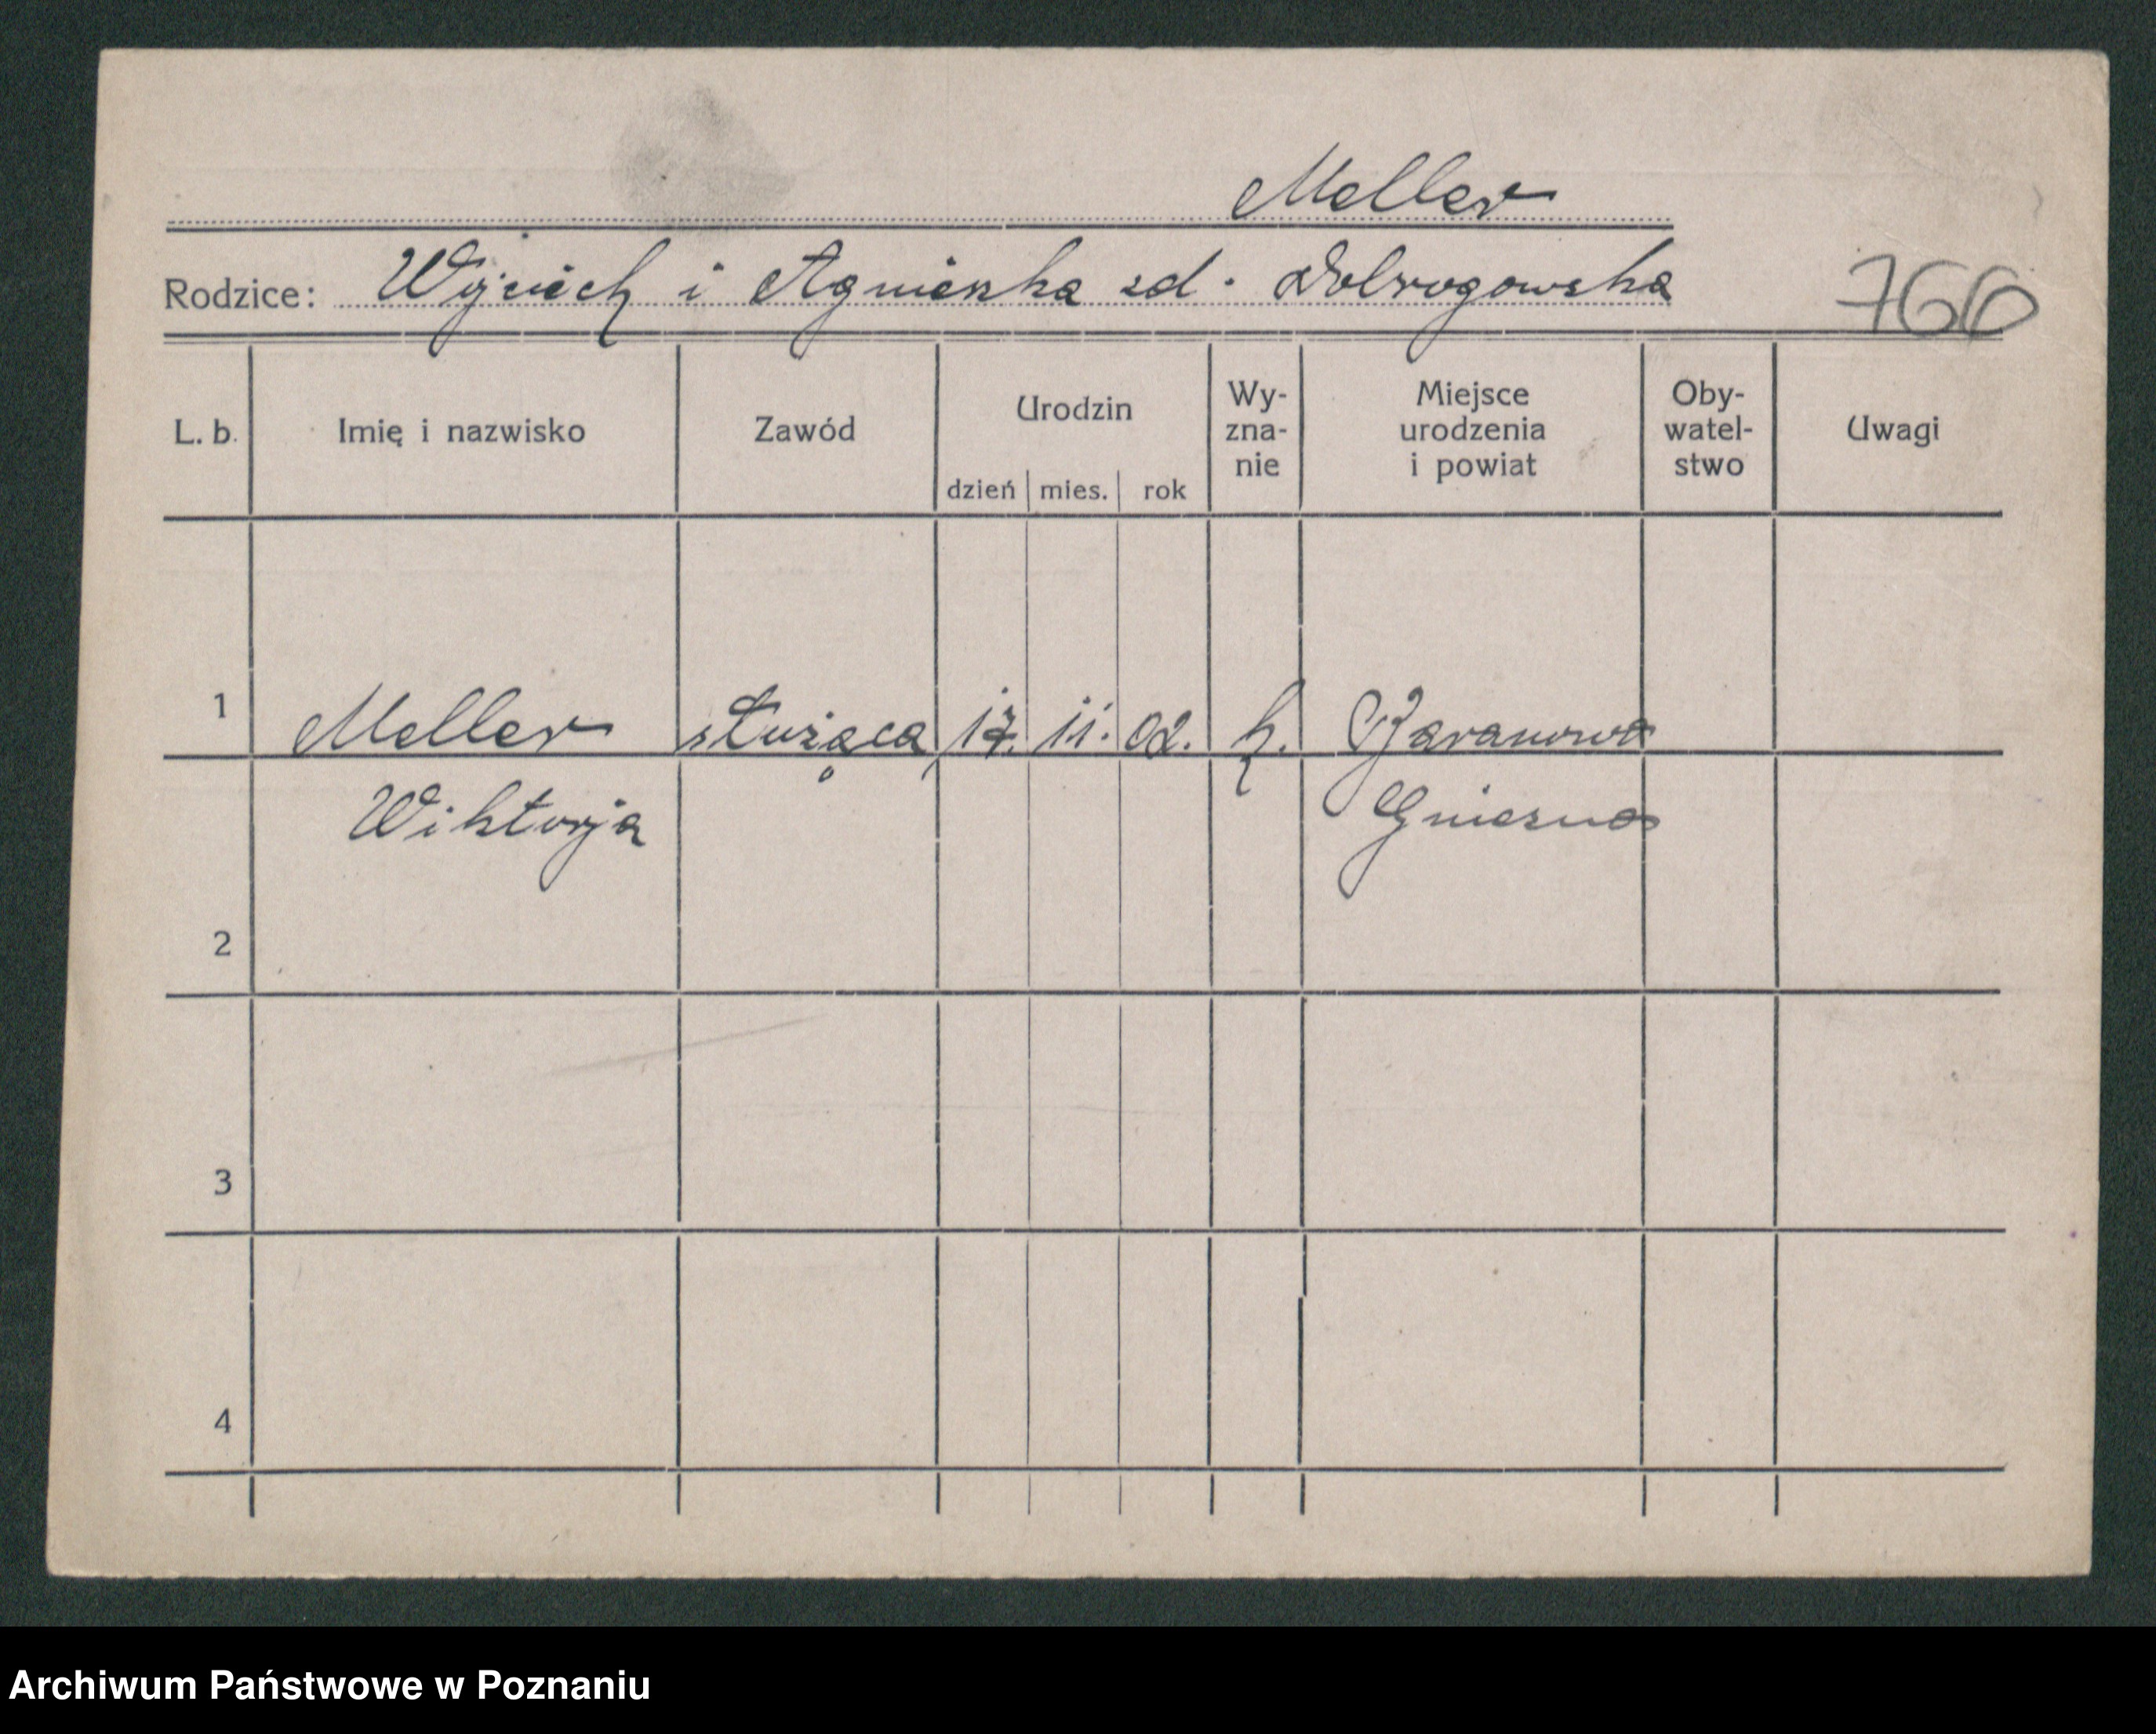 Meller
Rodzice: Wojciech i Agnieszka zd. Dobrogowska
766
L. b. Imię i nazwisko Zawód Urodzin dzień mies. rok Wy-zna-nie Miejsce urodzenia i powiat Oby-watel-stwo Uwagi
1 Meller służąca 17. 11. 02. k. Baranowo
Wiktorja Gniezno
2
3
4
Archiwum Państwowe w Poznaniu